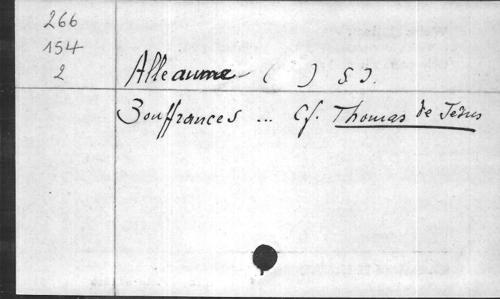 266
154
2
Alleaume - ( ) S J.
Souffrances ... Cf. Thomas de Jésus